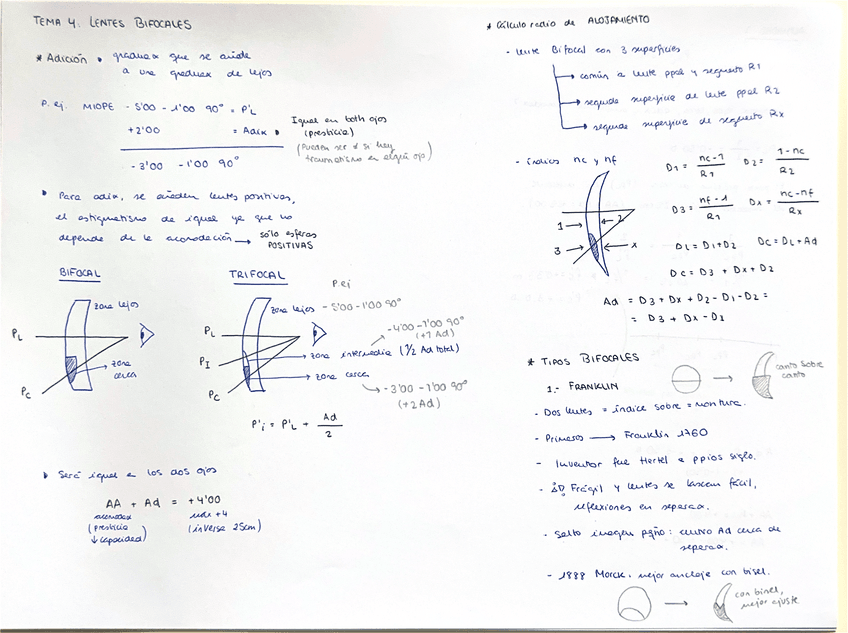 TEMA 4. LENTES BIFOCALES
* Adición • graduax que se añade
a una graduax de lejos
P. ej. MIOPE - 5'00 - 1'00 90° = P'L
+2'00 = Adix •
Igual en both ojos
(presbicia)
(Pueden ser ≠ si hay
traumatismo en algún ojo)
- 3'00 - 1'00 90°
• Para adix, se añaden lentes positivas,
el astigmatismo da igual ya que no
depende de la acomodación → sólo esferas
POSITIVAS
BIFOCAL
zona lejos
PL
zona
cerca
PC
TRIFOCAL
P.ej
zona lejos - 5'00 - 1'00 90°
PL
- 4'00 - 1'00 90°
(+1 Ad)
PI
zona intermedia (1/2 Ad total)
zona cerca
- 3'00 - 1'00 90°
(+2 Ad)
PC
P'i = P'L + Ad/2
• Será igual a los dos ojos
AA + Ad = +4'00
acomodax
(presbicia
↓ capacidad)
(inversa 25cm)
* Cálculo radio de ALOJAMIENTO
- Lente Bifocal con 3 superficies
→ común a lente ppal y segmento R1
→ segunda superficie de lente ppal R2
→ segunda superficie de segmento Rx
- índices nc y nf
D1 = nc-1/R1 D2 = 1-nc/R2
D3 = nf-1/R1 Dx = nc-nf/Rx
1 → ← 2
3 → ← x
DL = D1+D2 DC = DL+Ad
DC = D3 + Dx + D2
Ad = D3 + Dx + D2 - D1 - D2 =
= D3 + Dx - D1
* TIPOS BIFOCALES
canto sobre
canto
1.- FRANKLIN
- Dos lentes = índice sobre = montura.
- Primeros → Franklin 1760
- Inventor fue Hertel a ppios siglo.
- Frágil y lentes se lascan fácil,
reflexiones en separax.
- Salto imagen pqño: centro Ad cerca de
separax.
- 1888 Morck. mejor anclaje con bisel.
con bisel,
mejor ajuste